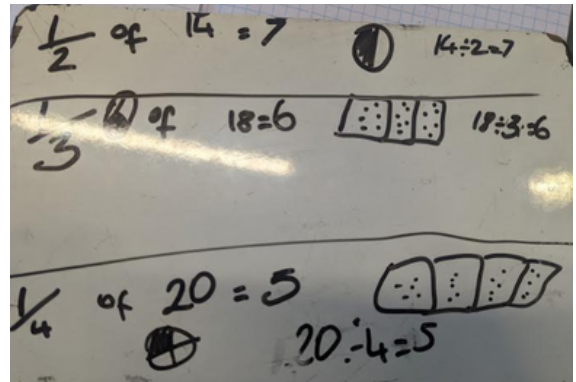 1/2 of 14 = 7 14÷2=7
1/3 of 18=6 18÷3=6
1/4 of 20 = 5
20÷4=5